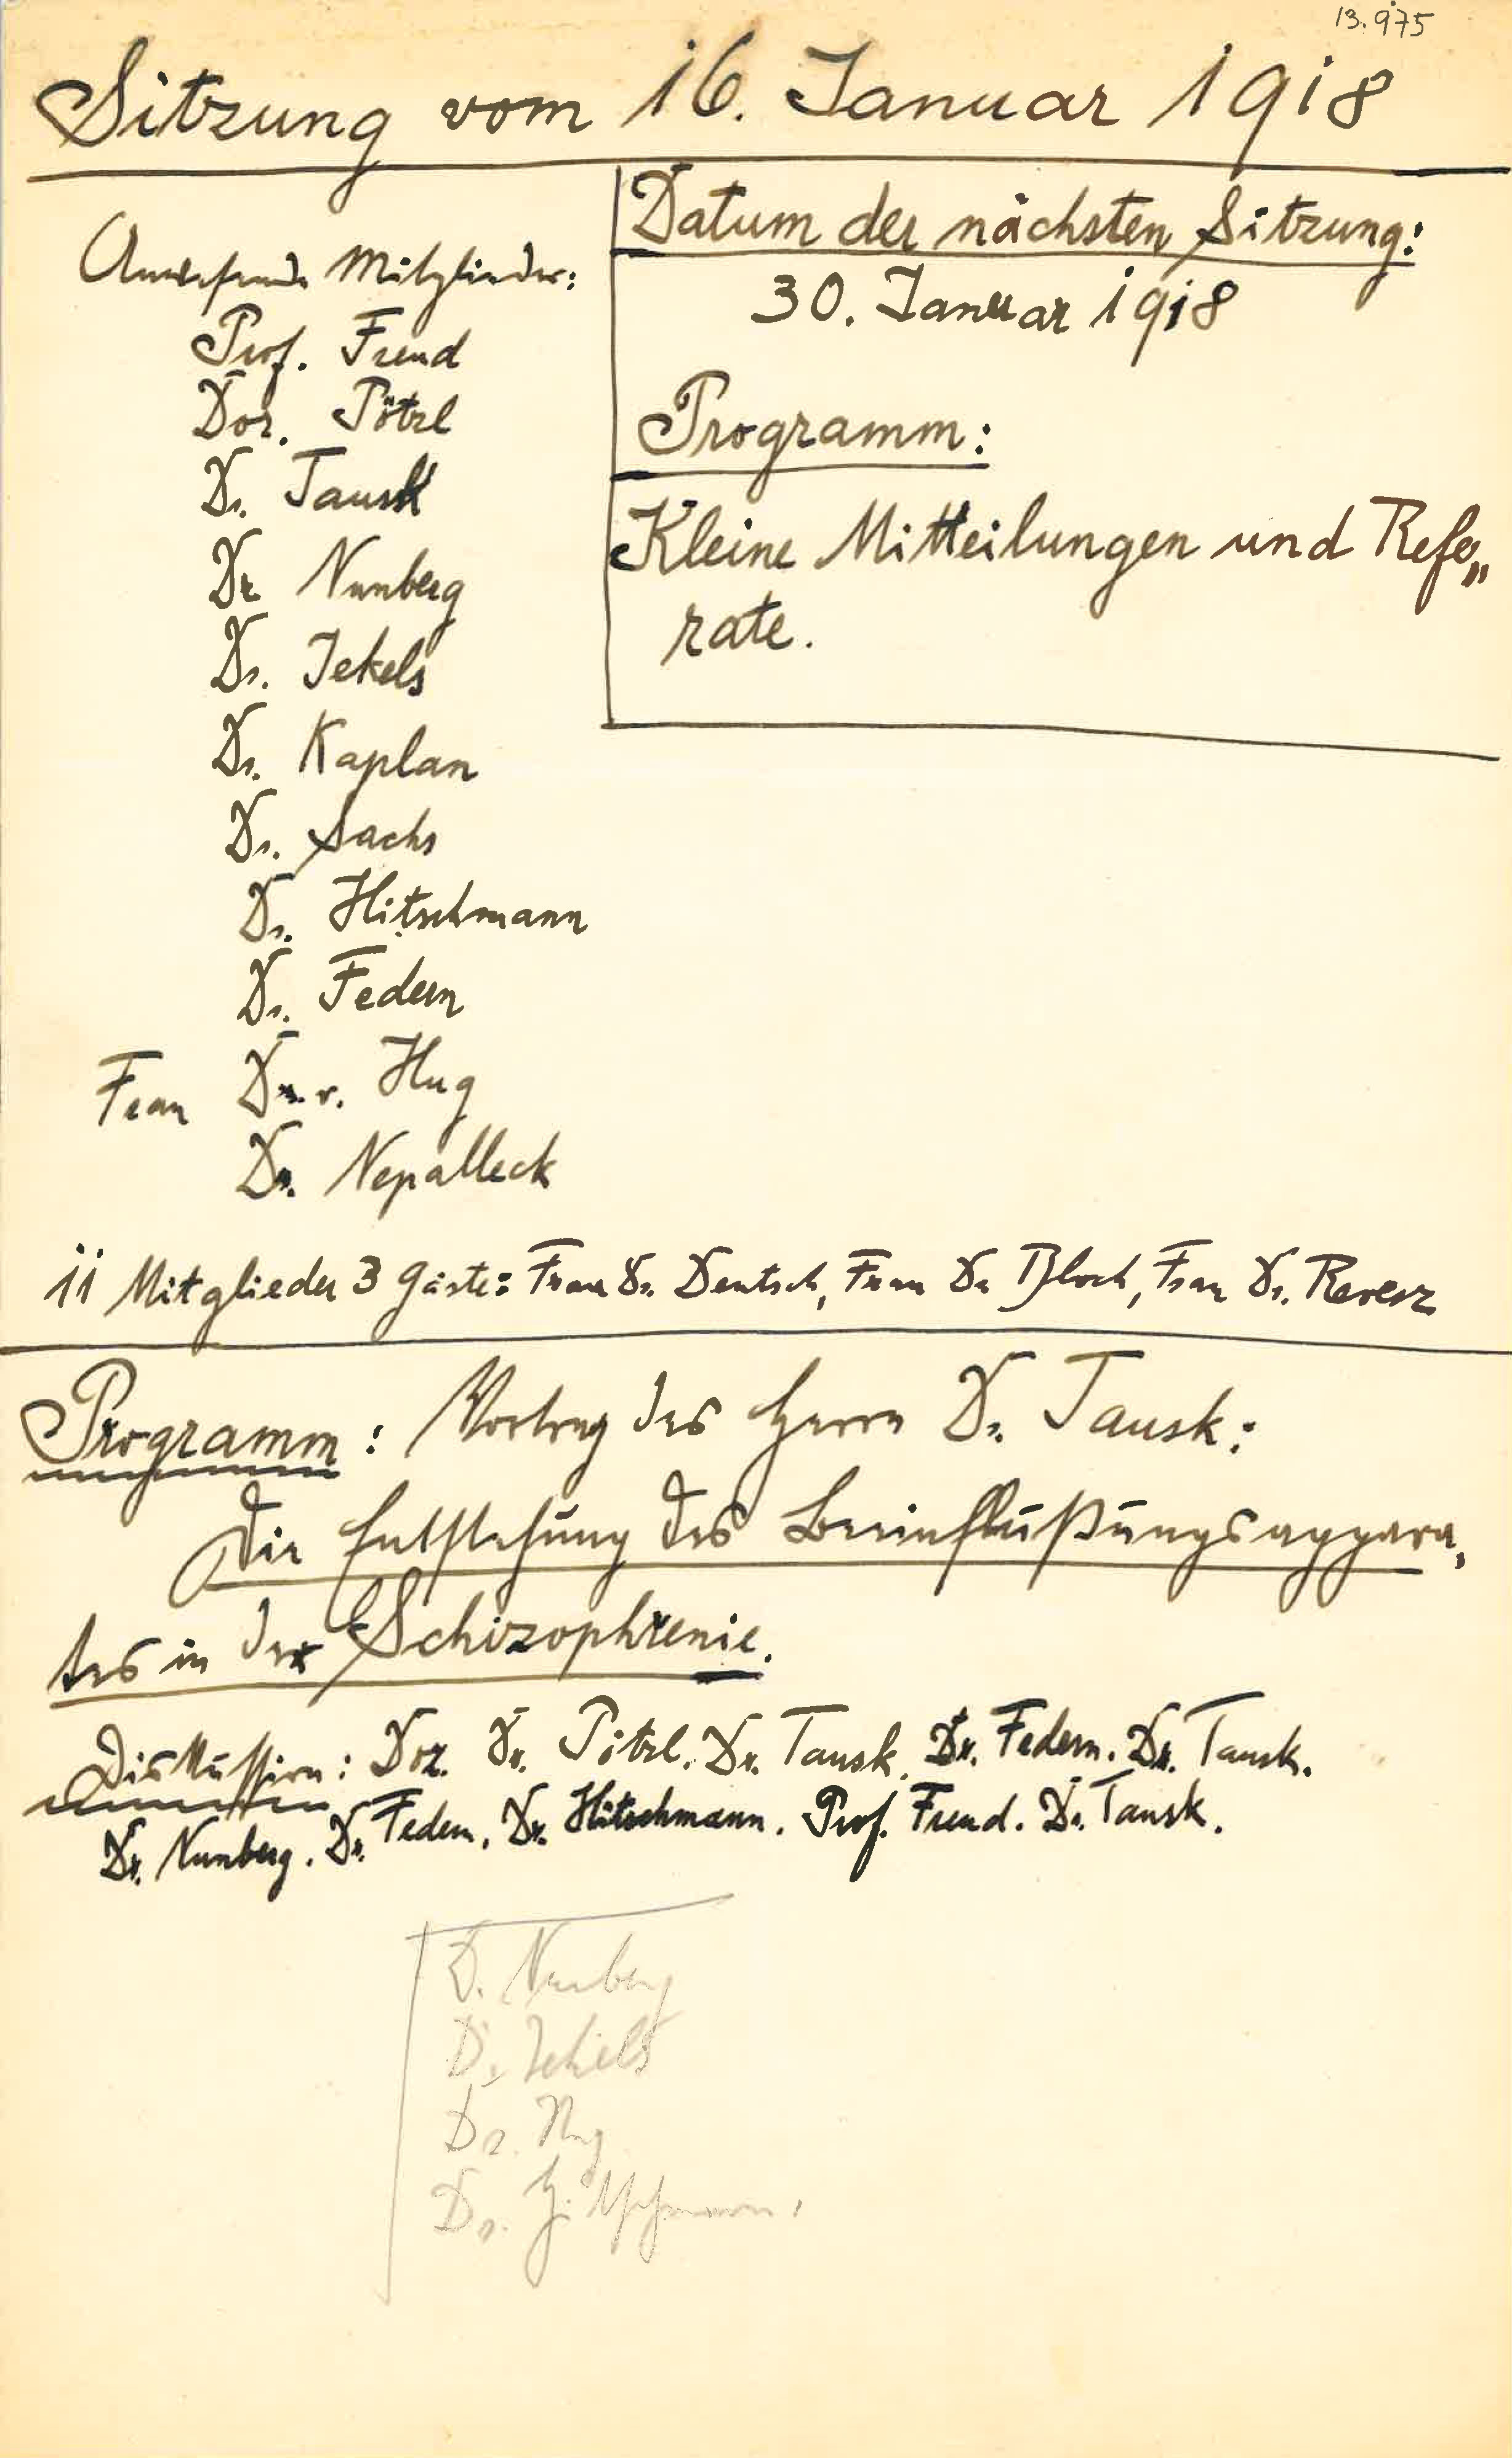 13.975
Sitzung vom 16. Januar 1918
Anwesende Mitglieder:
Prof. Freud
Doz. Pötzl
Dr. Tausk
Dr Nunberg
Dr. Jekels
Dr. Kaplan
Dr. Sachs
Dr. Hitschmann
Dr. Federn
Frau Dr. v. Hug
Dr. Nepalleck
Datum der nächsten Sitzung:
30. Januar 1918
Programm:
Kleine Mitteilungen und Refe„
rate.
11 Mitglieder 3 Gäste: Frau Dr. Deutsch, Frau Dr Bloch, Frau Dr. Revesz
Programm: Vortrag des Herrn Dr. Tausk:
Die Entstehung des Beeinflußungsappara„
tes in der Schizophrenie.
Diskussion: Doz. Dr. Pötzl. Dr. Tausk. Dr. Federn. Dr. Tausk.
Dr. Nunberg. Dr. Federn. Dr. Hitschmann. Prof. Freud. Dr. Tausk.
D. Nunberg
D. Jekels
Dr. Hug
Dr. Hitschmann.